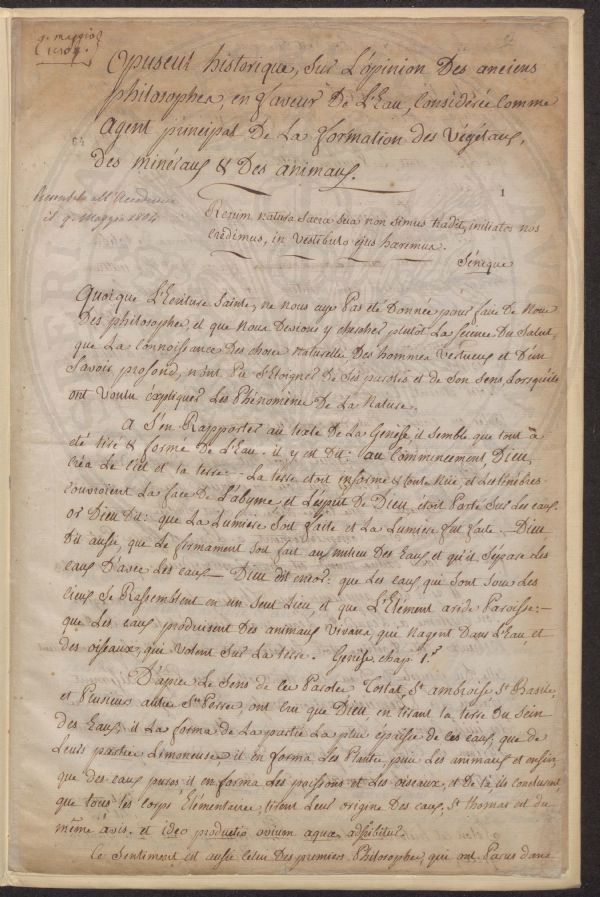 9. Maggio
1804.
Opuscul historique, sur L'opinion Des anciens
philosophes, en faveur De L'Eau, Considérée Comme
agent principal De La formation des Végétaux,
des minéraux & Des animaux.
all'Accademia
il 9. Maggio 1804
1
Rerum natura Sacra sua non simus tradit, initiatos nos
credimus, in Vestibulo ejus hæremus.
Sénèque
Quoique L'Ecriture Sainte, ne nous aye Pas été Donnée pour faire De Nous
Des philosophes, et que Nous Devions y chercher plutôt La science Du Salut,
que La Connoissance Des choses naturelles, Des hommes Vertueux et D'un
Savoir profond, n'ont Pu S'Eloigner De Ses paroles et de Son Sens, Lorsqu'ils
ont Voulu expliquer Les Phénomènes De La Nature.
A S'en Rapporter au texte De La Genèse, il semble que tout a
été tiré & formé De L'Eau. il y est Dit: au Commencement Dieu
créa Le Ciel et La terre. La terre étoit informe & toute Nüe et Les ténèbres
couvroient La face De L'abyme, et L'Esprit De Dieu, étoit Porté Sur Les eaux
or Dieu Dit: que La Lumière Soit faite et La Lumière fut faite. Dieu
Dit aussi, que Le firmament Soit fait au milieu Des Eaux, et qu'il Sépare Les
eaux D'avec Les eaux — Dieu dit encor: que Les eaux qui sont sous Les
cieux Se Rassemblent en un Seul Lieu et que L'Elément aride Paroisse: —
que Les eaux produisent Des animaux Vivans, qui Nagent Dans L'Eau, et
des oiseaux, qui Volent Sur La terre. Genèse, chap. 1.r
D'après Le Sens de Ces Paroles Tostat, St. ambroise St. Basile,
et Plusieurs autres Sts. Peres, ont cru que Dieu en tirant La terre Du Sein
des Eaux, il La forma de La partie La plus épaisse de Ces eaux, que de
Leurs parties Limoneuses, il en forma Les Plantes, puis Les animaux et enfin,
que des eaux pures il en forma Les poissons et Les oiseaux, et De là ils Concluent
que tous Les Corps Elémentaires, tirent Leur origine Des eaux, St. thomas est du
même avis. et ideo productio avium aquæ adscribitur.
Ce Sentiment est aussi Celui Des premiers Philosophes, qui ont Parus dans